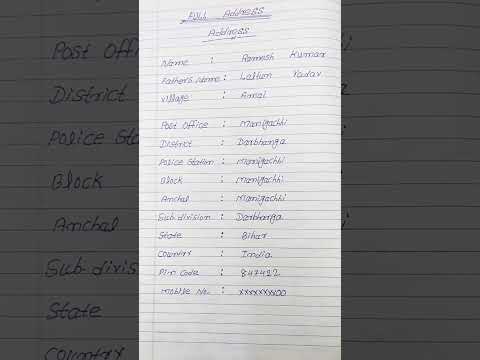 Full Address
Address
Name : Ramesh Kumar
Father's Name : Lallun Yadav
Village : Amai
Post Office : Manigachhi
District : Darbhanga
Police Station : Manigachhi
Block : Manigachhi
Anchal : Manigachhi
Sub division : Darbhanga
State : Bihar
Country : India
Pin Code : 847422
Mobile No. : xxxxxxxx00
Post Office
District
Police Stat
Block
Anchal
Sub divis
State
Country